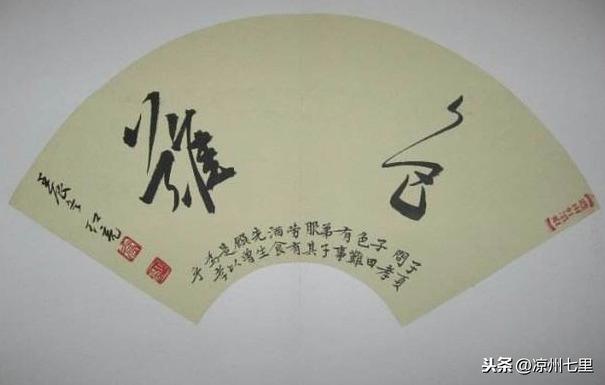 色難
子夏
問孝
子曰
色難
有事
弟子
服其
勞有
酒食
先生
饌曾
是以
為孝
乎
壬辰
头条 @凉州七里